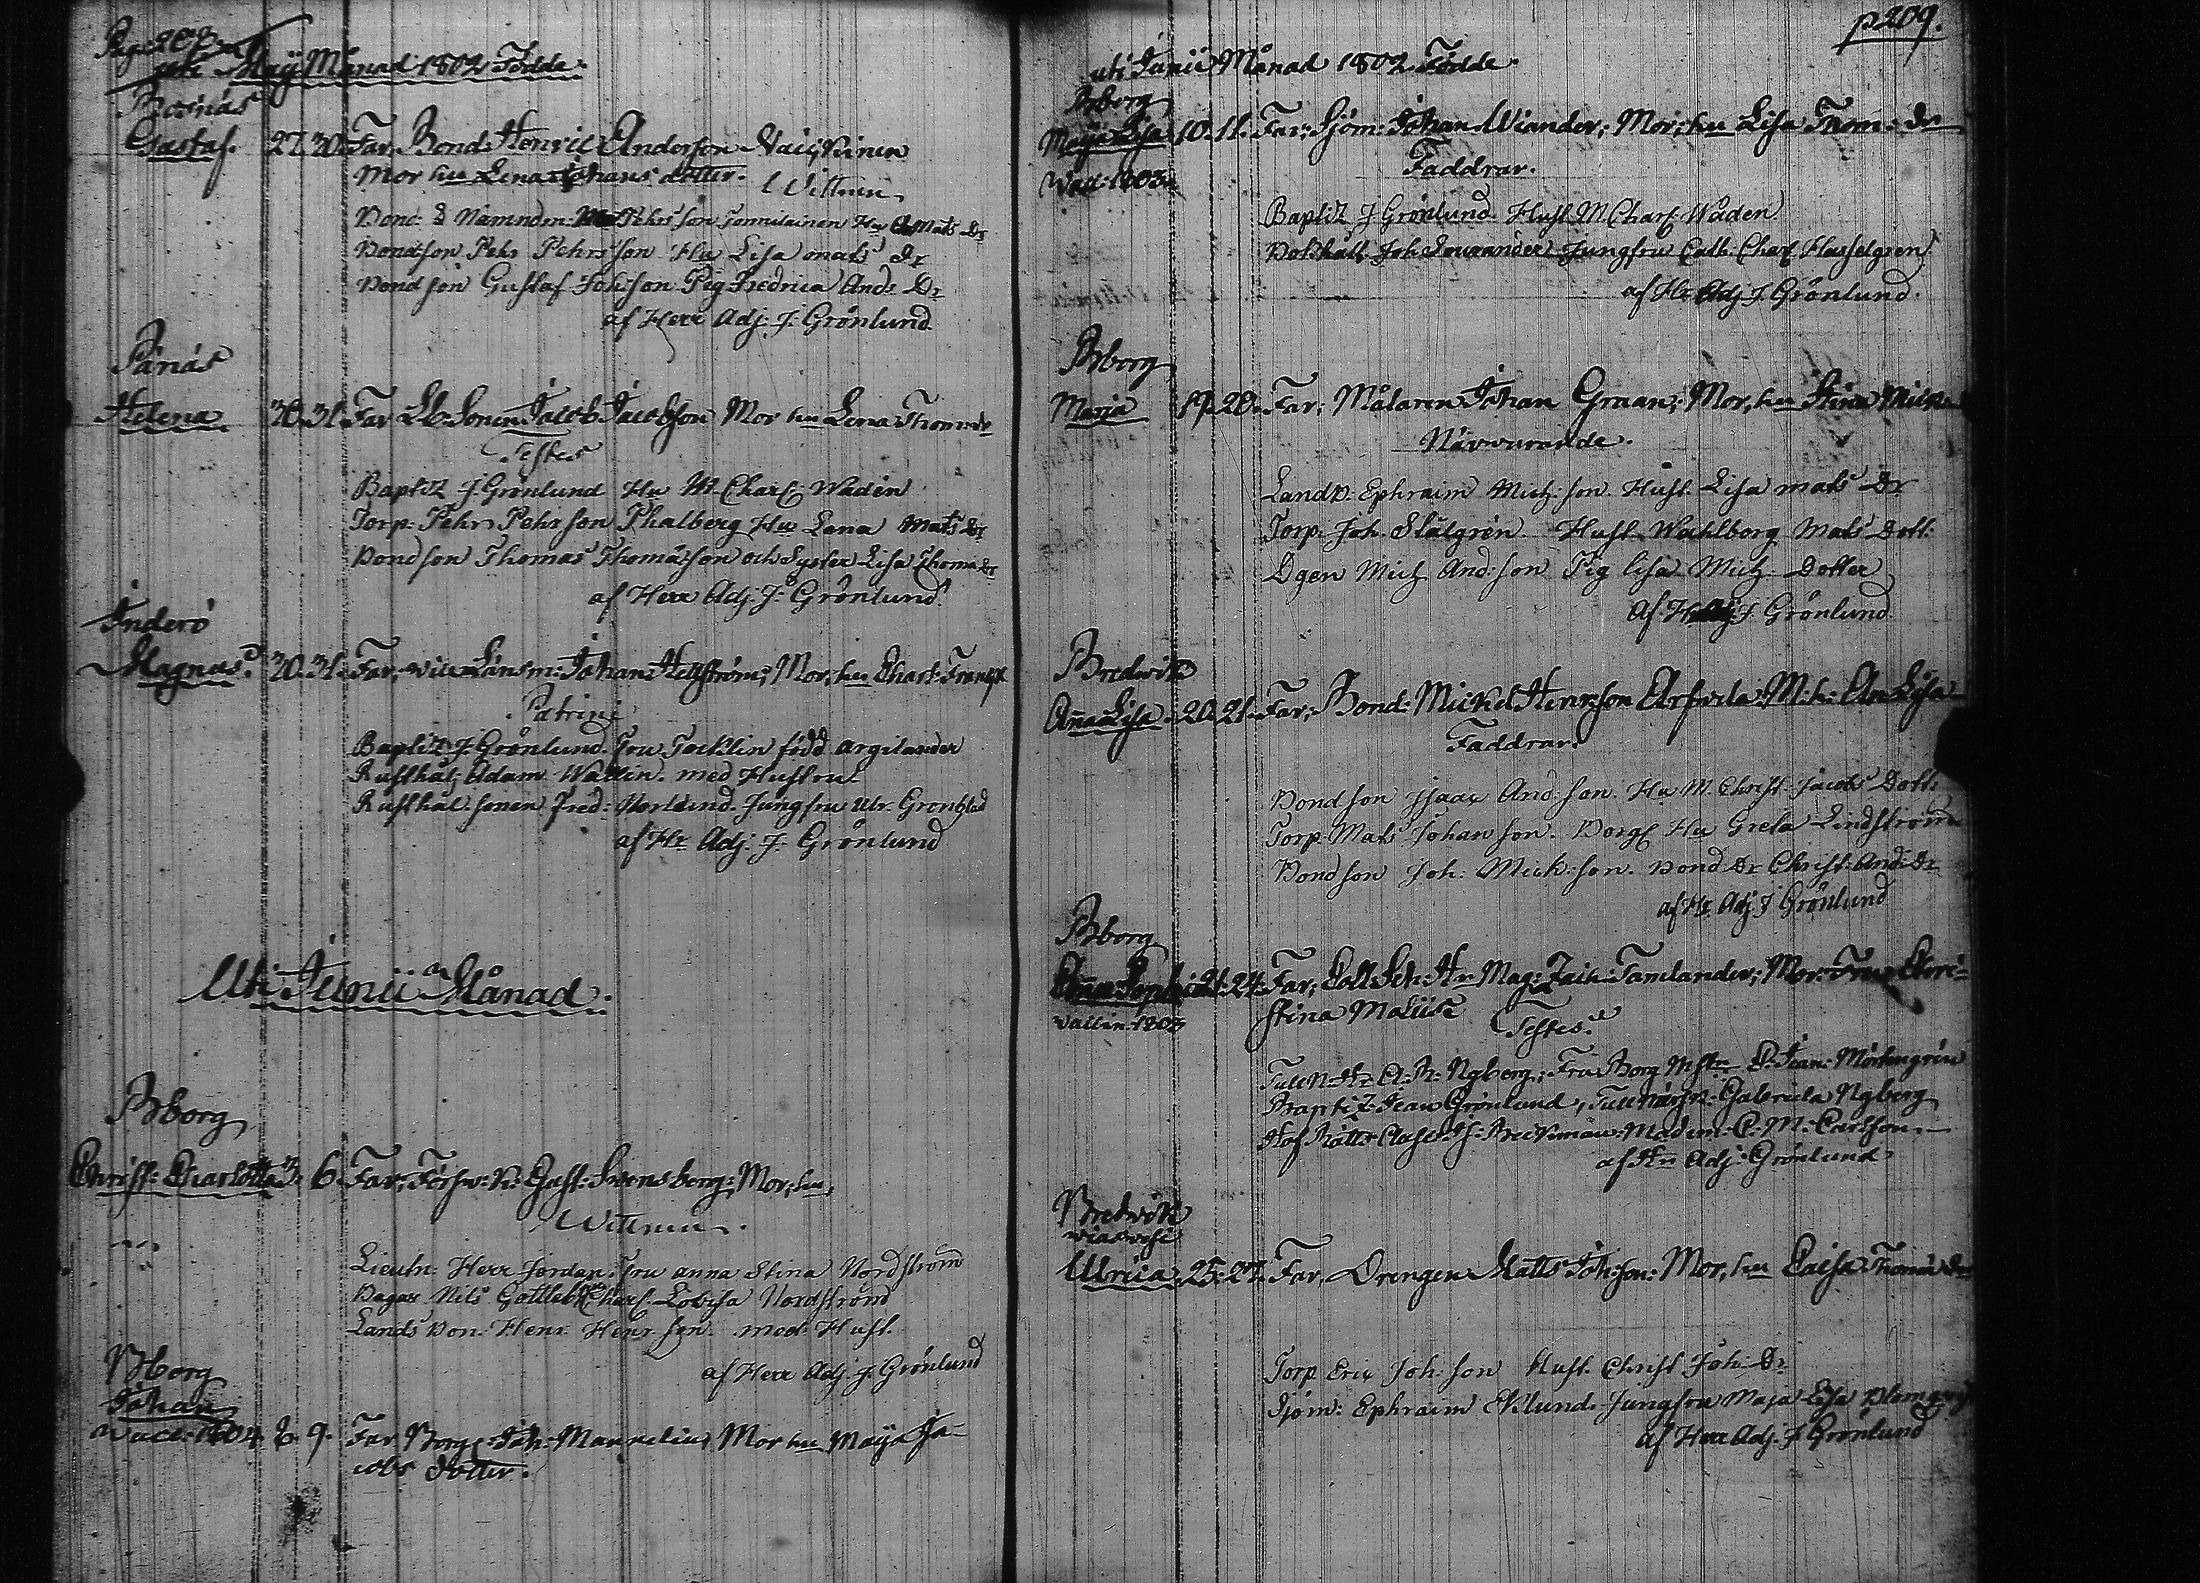 Pag. 208
uti Maij Månad 1802 Födde.
Gustaf. 27. 30. Far, Bond: Henric Anderson
Mor hu Lena Johans dotter. Wittnen
Bond: & Nämndm: Pehrsson Hu Mats Dr
Bondson Pehr Pehrsson Hu Lisa mats Dr
Bondson Gustaf Joh:son Pig Fredrica And: Dr
af Herr Adj: J: Grönlund
Sänäs
Helena 30. 31. Far Sonen Jacob Jacobson Mor hu Lena Thom: dr
Testes
Baptiz J Grönlund Hu M Charl: Wadén
Torp: Pehr Pehrson Phalberg Hu Lena Mats Dr
Bondson Thomas Thomasson och Syster Lisa Thoma Dr
af Herr Adj: J: Grönlund
Inderö
Magnus. 30. 31. Far, Länsm: Johan Hellström; Mor, hu Charl:
Patrini
Baptiz J: Grönlund. Fru Tocklin född argilander
Rusthål: Adam Wallin. med Hustru
Rusthål: sonen Fred: Norlund. Jungfru Ulr. Grönblad
af Hr Adj. J. Grönlund
Uti Junii Månad.
Bborg
Christ: Charlotta 3. 6. Far, Gust: Svensberg; Mor, hu,
Wittnen.
Lieutn: Herr Jordan. Fru anna Stina Nordström
Bagar Nils Gottleb Charl. Lovisa Nordström
Lands Bon. Henr. Henr. son. med Hust.
af Herr Adj. J. Grönlund
Bborg
Johan
8. 9. Far Borg: Joh: Mannelius, Mor hu Maija Ja-
cobs dotter.
p 209.
uti Junii Månad 1802 Födde.
Bborg
Maja Lisa 10. 11. Far: Sjöm: Johan Wiander; Mor, hu Lisa Thom: dr
Wacc: 1803
Faddrar.
Baptiz J Grönlund. Hust M. Charl. Wåden
Joh Sourander Jungfru Cath. Charl Hasselgren
af Hr Adj J. Grönlund.
Bborg
Maja 19. 20. Far; Målaren Johan Graan; Mor, hu Stina Mick:
Närwarande.
Landb. Ephraim Mich: son. Hust. Lisa mats Dr
Torp. Joh. Stålgrén Hust. Wahlborg Mats Dott:
Dgen Mich And: son Pig lisa Mich: Dotter
af J Grönlund
Bredwik
Ana Lisa. 20. 21. Far, Bond: Mickel Henr:son Arfvela. M: h: An Lisa
Faddrar.
Bondson Isaac And: son. Hu M. Christ. Jacobs Dott:
Torp. Mats Johanson. Borg: Hu Greta Lindström
Bondson Joh: Mick: son. Bond Dr Christ: And: Dr
af Hr Adj J Grönlund
Bborg
21. 24. Far, Hr Mag: Zach: Tamlander; Mor: Fru Chri-
stina Maliise
Testes.
Tull N: Hr C: R: Nyberg; Fru Borg Mstre Jean: Mörtengrén
Baptiz. Jean Grönlund, Gabriela Nyberg
Hof Rätts Ausc: Is: Beckman Madm: C: M: Carlson.
af Hr Adj: Grönlund
Bredwik
Ulrica 25. 27. Far, Drengen Matts Joh:son: Mor, hu Caisa Thomas dr
Torp Eric Joh: son Hust. Christ Joh: Dr
Sjöm: Ephraim Eklund. Jungfru Maja Lisa
af Herr Adj. J Grönlund